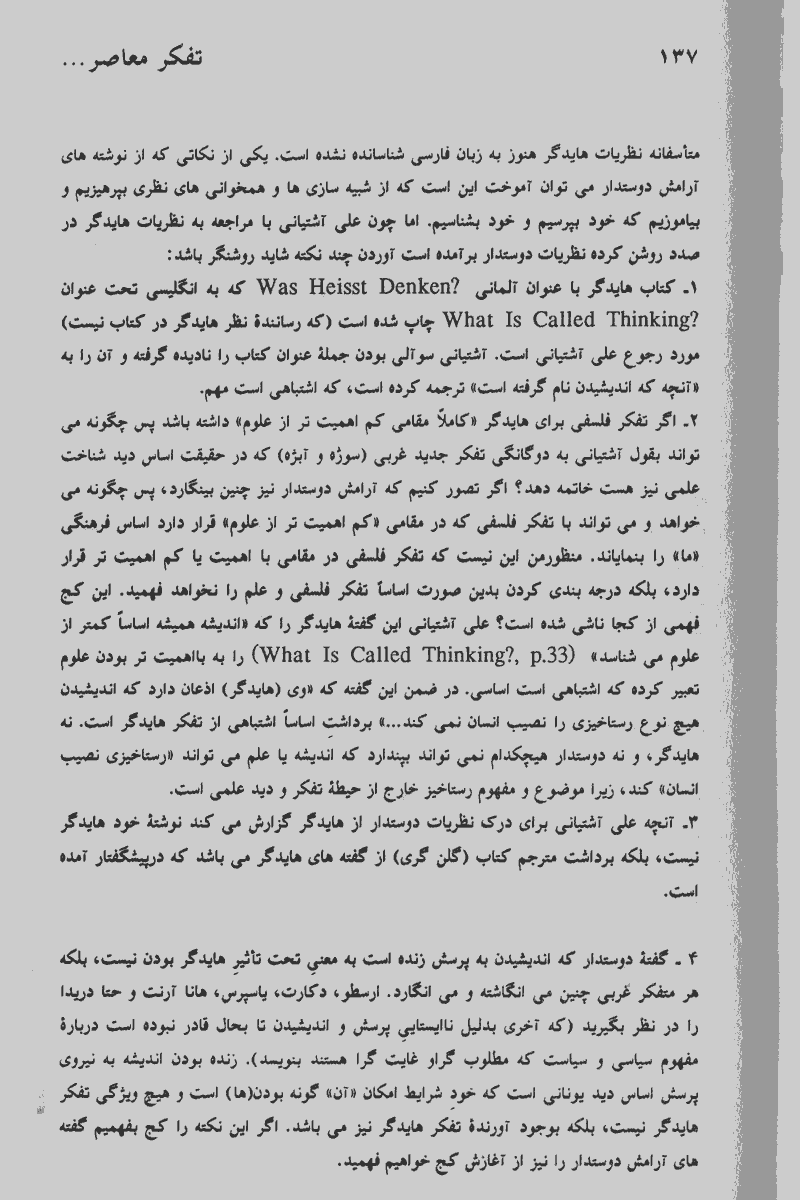 ۱۳۷
تفکر معاصر...
متأسفانه نظریات هایدگر هنوز به زبان فارسی شناسانده نشده است. یکی از نکاتی که از نوشته های
آرامش دوستدار می توان آموخت این است که از شبیه سازی ها و همخوانی های نظری بپرهیزیم و
بیاموزیم که خود بپرسیم و خود بشناسیم. اما چون علی آشتیانی با مراجعه به نظریات هایدگر در
صدد روشن کرده نظریات دوستدار برآمده است آوردن چند نکته شاید روشنگر باشد:
۱ـ کتاب هایدگر با عنوان آلمانی Was Heisst Denken? که به انگلیسی تحت عنوان
What Is Called Thinking? چاپ شده است (که رسانندهٔ نظر هایدگر در کتاب نیست)
مورد رجوع علی آشتیانی است. آشتیانی سوآلی بودن جملهٔ عنوان کتاب را نادیده گرفته و آن را به
«آنچه که اندیشیدن نام گرفته است» ترجمه کرده است، که اشتباهی است مهم.
۲ـ اگر تفکر فلسفی برای هایدگر «کاملاً مقامی کم اهمیت تر از علوم» داشته باشد پس چگونه می
تواند بقول آشتیانی به دوگانگی تفکر جدید غربی (سوژه و آبژه) که در حقیقت اساس دید شناخت
علمی نیز هست خاتمه دهد؟ اگر تصور کنیم که آرامش دوستدار نیز چنین بینگارد، پس چگونه می
خواهد و می تواند با تفکر فلسفی که در مقامی «کم اهمیت تر از علوم» قرار دارد اساس فرهنگی
«ما» را بنمایاند. منظورمن این نیست که تفکر فلسفی در مقامی با اهمیت یا کم اهمیت تر قرار
دارد، بلکه درجه بندی کردن بدین صورت اساساً تفکر فلسفی و علم را نخواهد فهمید. این کج
فهمی از کجا ناشی شده است؟ علی آشتیانی این گفتهٔ هایدگر را که «اندیشه همیشه اساساً کمتر از
علوم می شناسد» (What Is Called Thinking?, p.33) را به بااهمیت تر بودن علوم
تعبیر کرده که اشتباهی است اساسی. در ضمن این گفته که «وی (هایدگر) اذعان دارد که اندیشیدن
هیچ نوع رستاخیزی را نصیب انسان نمی کند...» برداشتِ اساساً اشتباهی از تفکر هایدگر است. نه
هایدگر، و نه دوستدار هیچکدام نمی تواند بپندارد که اندیشه یا علم می تواند «رستاخیزی نصیب
انسان» کند، زیرا موضوع و مفهوم رستاخیز خارج از حیطهٔ تفکر و دید علمی است.
۳ـ آنچه علی آشتیانی برای درک نظریات دوستدار از هایدگر گزارش می کند نوشتهٔ خود هایدگر
نیست، بلکه برداشت مترجم کتاب (گلن گری) از گفته های هایدگر می باشد که درپیشگفتار آمده
است.
۴ ـ گفتهٔ دوستدار که اندیشیدن به پرسش زنده است به معنیِ تحت تأثیرِ هایدگر بودن نیست، بلکه
هر متفکر غربی چنین می انگاشته و می انگارد. ارسطو، دکارت، یاسپرس، هانا آرنت و حتا دریدا
را در نظر بگیرید (که آخری بدلیل ناایستاییِ پرسش و اندیشیدن تا بحال قادر نبوده است دربارهٔ
مفهوم سیاسی و سیاست که مطلوب گراو غایت گرا هستند بنویسد). زنده بودن اندیشه به نیروی
پرسش اساس دید یونانی است که خودِ شرایط امکان «آن» گونه بودن(ها) است و هیچ ویژگی تفکر
هایدگر نیست، بلکه بوجود آورندهٔ تفکر هایدگر نیز می باشد. اگر این نکته را کج بفهمیم گفته
های آرامش دوستدار را نیز از آغازش کج خواهیم فهمید.